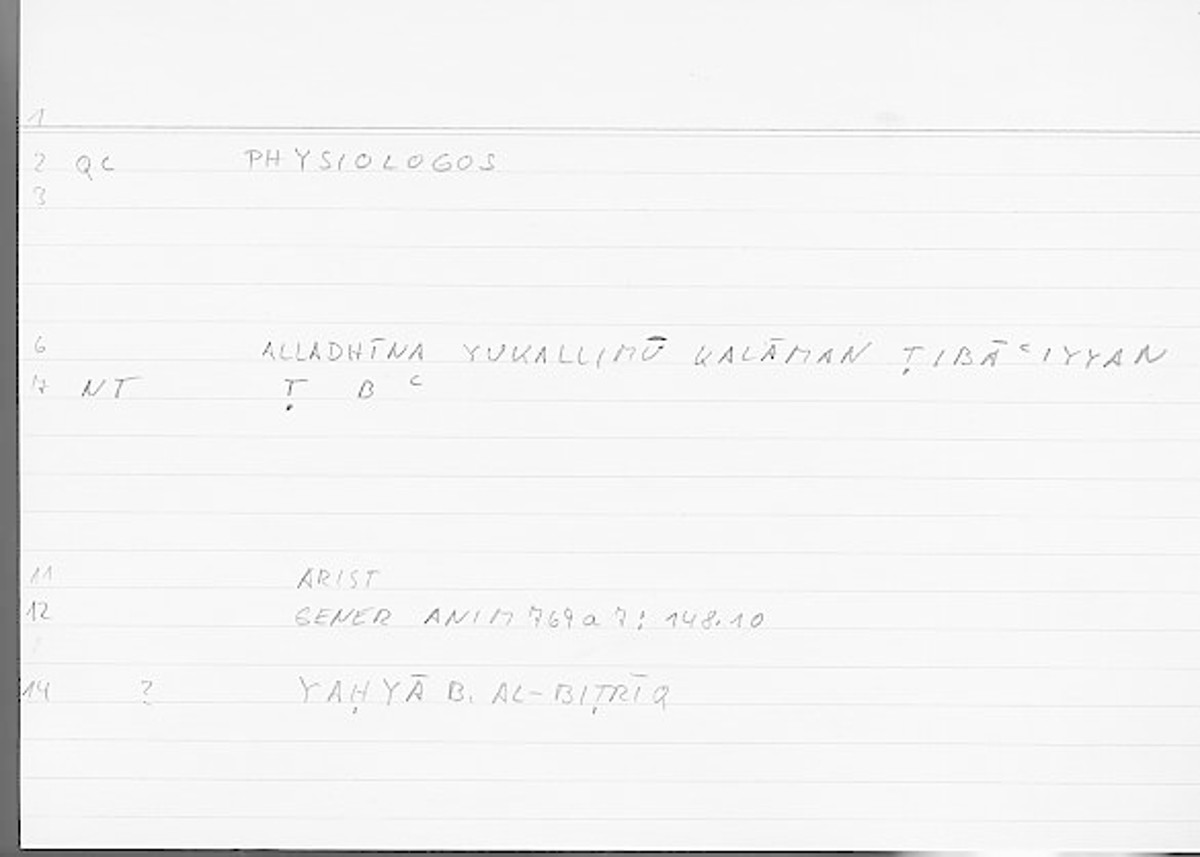 1
2 QC PHYSIOLOGOS
3
6 ALLADHĪNA YUKALLIMŪ KALĀMAN ṬIBĀᶜIYYAN
7 NT Ṭ B ᶜ
11 ARIST
12 GENER ANIM 769a7: 148.10
14 ? YAḤYĀ B. AL-BIṬRĪQ